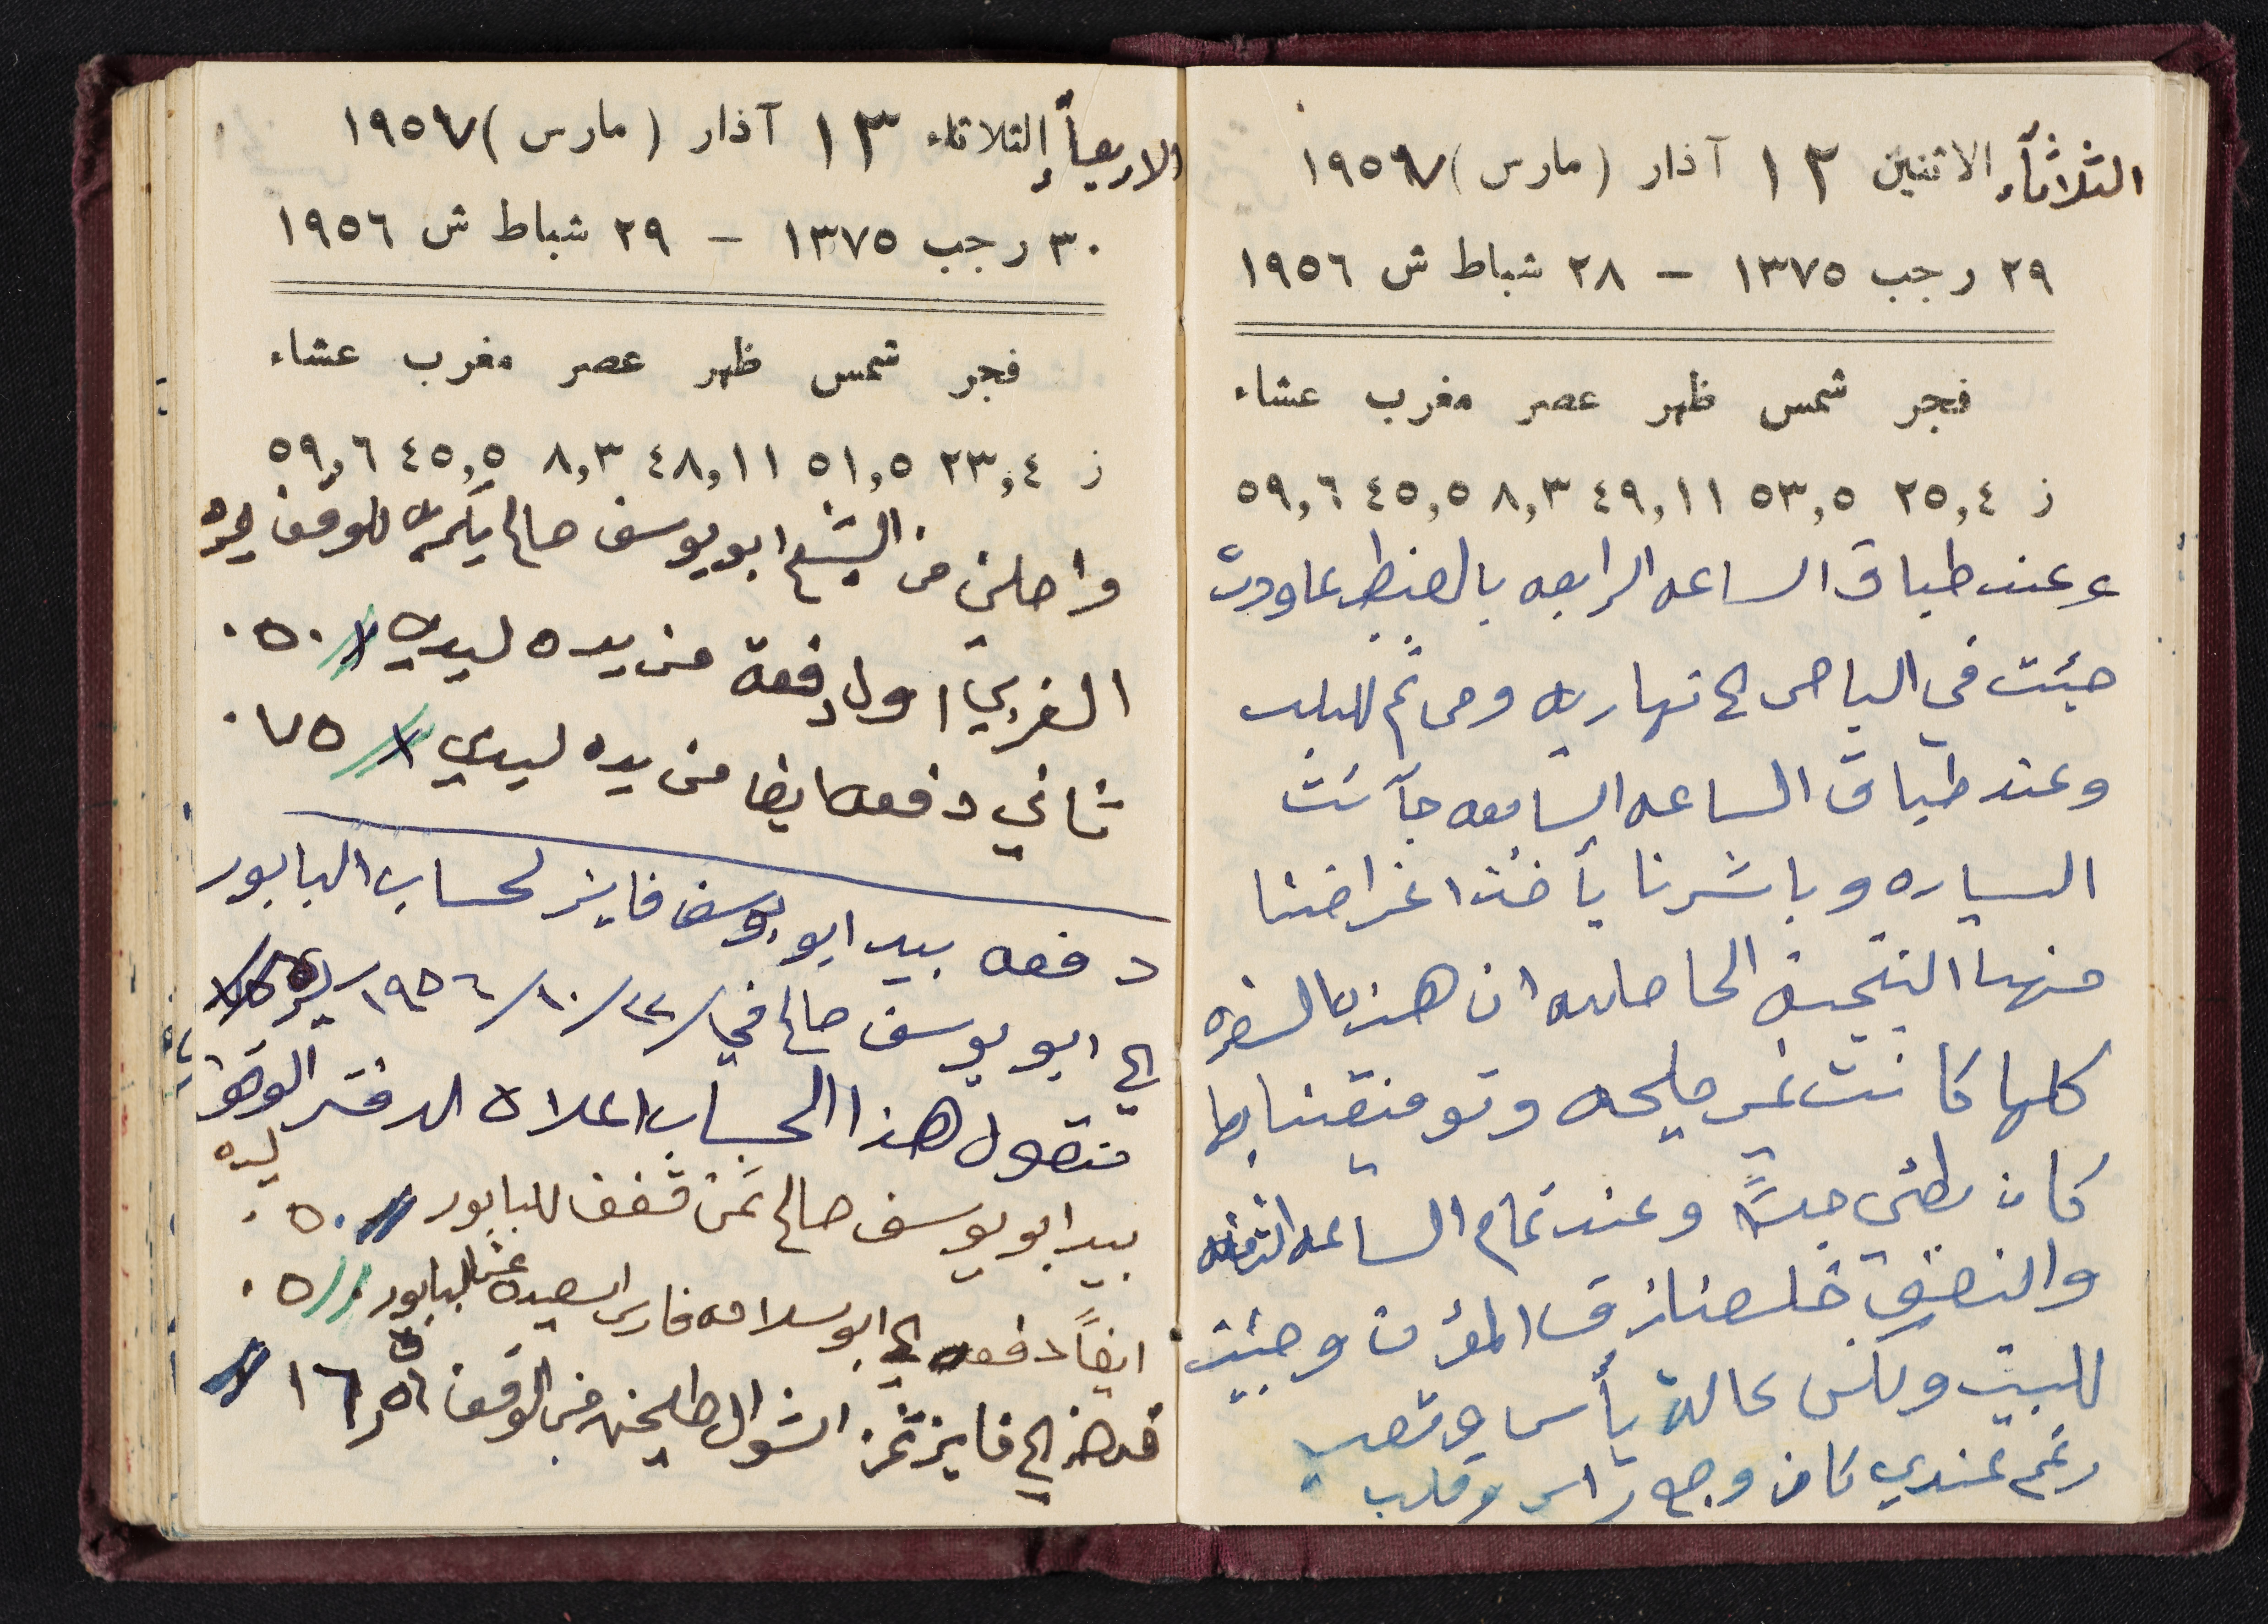 الثلاثاء الاثنين ١٢ آذار (مارس) ١٩٥٧
٢٩ رجب ١٣٧٥ – ٢٨ شباط ش ١٩٥٦
فجر شمس ظهر عصر مغرب عشاء
ز ٢٥,٤ ٥٣,٥ ٤٩,١١ ٨,٣ ٤٥,٥ ٥٩,٦
وعند طباق الساعه الرابعه بالضبط عاودت
جيئت في الباص الى نهاريا ومن ثم للبلد
وعند طباق الساعه السابعه جآئت
السياره وباشرنا بأخذ اغراضنا
منها النتيجة الحاصله ان هذه السفره
كلها كانت غير مليحه وتوفيقنا بها
كان بطئي جداً وعند تمام الساعه الثامنه
والنصف خلصنا المؤن وجئت
للبيت ولكن بحالة يأس وتعب
رغم عندي كان وجع راس وقلب
الاربعاء الثلاثاء ١٣ آذار (مارس) ١٩٥٧
٣٠ رجب ١٣٧٥ – ٢٩ شباط ش ١٩٥٦
فجر شمس ظهر عصر مغرب عشاء
ز ٢٣,٤ ٥١,٥ ٤٨,١١ ٨,٣ ٤٥,٥ ٥٩,٦
واصلني من الشيخ ابو يوسف صالح للوقف ليره
الغربي اول دفعة من يده ليدي ٠٥٠
ثاني دفعه ايضا من يده ليدي ٠٧٥
دفعه بيد ابو يوسف فايز لحساب البابور
الى ابو يوسف صالح في ٢٢/١٠/١٩٥٦
منقول هذا الحساب اعلاه لدفتر الوقف
بيد ابو يوسف صالح ثمن قفف للبابور ٠٥٠ ليره
ايضاً دفعه الى ابو سلامه فارس للبابور ٠٥
الى فايز ثمن الشوال طحين من الوقف